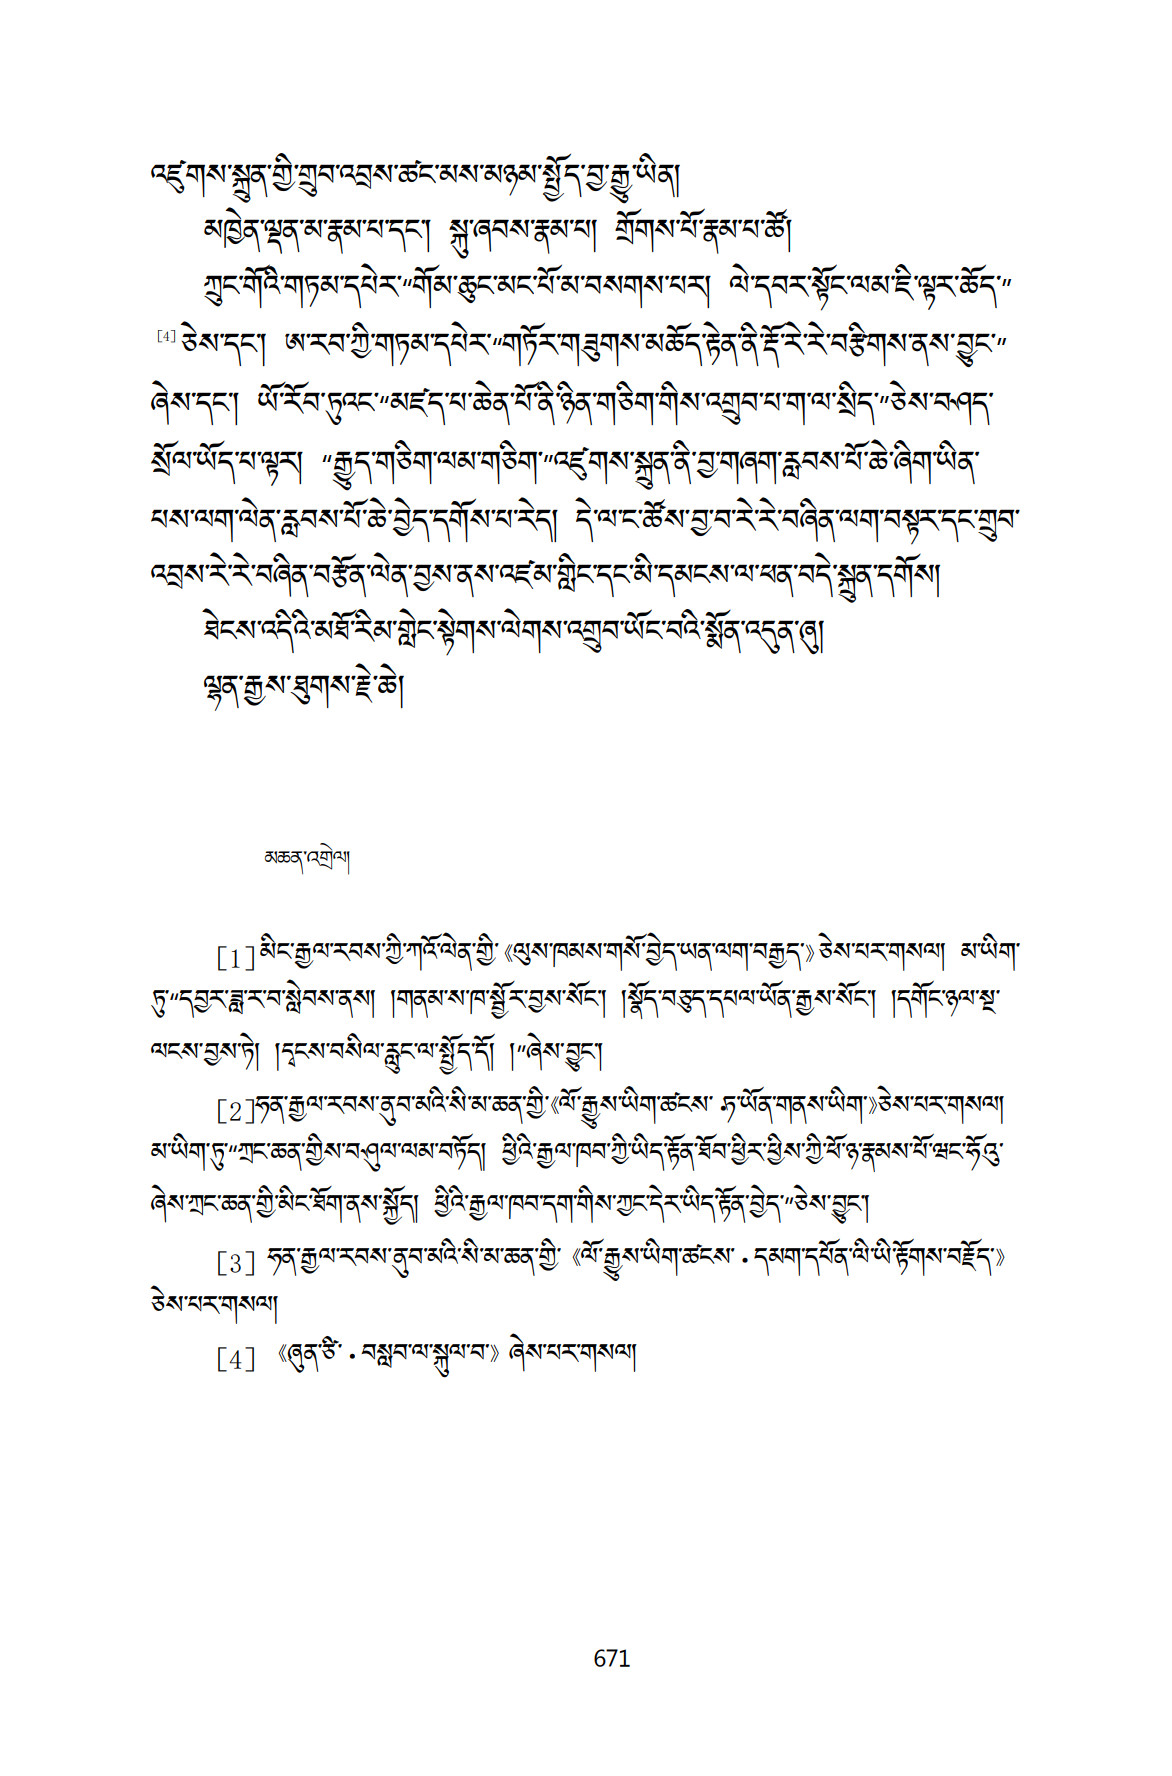 འཛུགས་སྐྲུན་གྱི་གྲུབ་འབྲས་ཚང་མས་མཉམ་སྤྱོད་བྱ་རྒྱུ་ཡིན།
མཁྱེན་ལྡན་མ་རྣམ་པ་དང་། སྐུ་ཞབས་རྣམ་པ། གྲོགས་པོ་རྣམ་པ་ཚོ།
ཀྲུང་གོའི་གཏམ་དཔེར་“གོམ་ཆུང་མང་པོ་མ་བསགས་པར། ལེ་དབར་སྟོང་ལམ་ཇི་ལྟར་ཆོད་”
[4]ཅེས་དང་། ཨ་རབ་ཀྱི་གཏམ་དཔེར་“གཏོར་གཟུགས་མཆོད་རྟེན་ནི་རྡོ་རེ་རེ་བརྩིགས་ནས་བྱུང་”
ཞེས་དང་། ཡོ་རོབ་ཏུའང་“མཛད་པ་ཆེན་པོ་ནི་ཉིན་གཅིག་གིས་འགྲུབ་པ་ག་ལ་སྲིད་”ཅེས་བཤད་
སྲོལ་ཡོད་པ་ལྟར། “རྒྱུད་གཅིག་ལམ་གཅིག་”འཛུགས་སྐྲུན་ནི་བྱ་གཞག་རླབས་པོ་ཆེ་ཞིག་ཡིན་
པས་ལག་ལེན་རླབས་པོ་ཆེ་བྱེད་དགོས་པ་རེད། དེ་ལ་ང་ཚོས་བྱ་བ་རེ་རེ་བཞིན་ལག་བསྟར་དང་གྲུབ་
འབྲས་རེ་རེ་བཞིན་བརྩོན་ལེན་བྱས་ནས་འཛམ་གླིང་དང་མི་དམངས་ལ་ཕན་བདེ་སྐྲུན་དགོས།
ཐེངས་འདིའི་མཐོ་རིམ་གླེང་སྟེགས་ལེགས་འགྲུབ་ཡོང་བའི་སྨོན་འདུན་ཞུ།
ལྷན་རྒྱས་ཐུགས་རྗེ་ཆེ།
མཆན་འགྲེལ།
[1]མིང་རྒྱལ་རབས་ཀྱི་ཀའོ་ལེན་གྱི་《ལུས་ཁམས་གསོ་བྱེད་ཡན་ལག་བརྒྱད་》ཅེས་པར་གསལ། མ་ཡིག་
ཏུ་“དབྱར་ཟླ་ར་བ་སླེབས་ནས། །གནམ་ས་ཁ་སྦྱོར་བྱས་སོང་། །སྣོད་བཅུད་དཔལ་ཡོན་རྒྱས་སོང་། །དགོང་ཉལ་སྔ་
ལངས་བྱས་ཏེ། །དྭངས་བསིལ་རླུང་ལ་སྤྱོད་དོ། །”ཞེས་བྱུང་།
[2]ཧན་རྒྱལ་རབས་ནུབ་མའི་སི་མ་ཆན་གྱི་《ལོ་རྒྱུས་ཡིག་ཚངས་·ཏ་ཡོན་གནས་ཡིག་》ཅེས་པར་གསལ།
མ་ཡིག་ཏུ་“ཀྲང་ཆན་གྱིས་བཤུལ་ལམ་བཏོད། ཕྱིའི་རྒྱལ་ཁབ་ཀྱི་ཡིད་རྟོན་ཐོབ་ཕྱིར་ཕྱིས་ཀྱི་ཕོ་ཉ་རྣམས་པོ་ཝང་ཧོའུ་
ཞེས་ཀྲང་ཆན་གྱི་མིང་ཐོག་ནས་སྐྱོད། ཕྱིའི་རྒྱལ་ཁབ་དག་གིས་ཀྱང་དེར་ཡིད་རྟོན་བྱེད་”ཅེས་བྱུང་།
[3] ཧན་རྒྱལ་རབས་ནུབ་མའི་སི་མ་ཆན་གྱི་《ལོ་རྒྱུས་ཡིག་ཚངས་·དམག་དཔོན་ལི་ཡི་རྟོགས་བརྗོད་》
ཅེས་པར་གསལ།
[4] 《ཞུན་ཙི་·བསླབ་ལ་སྐུལ་བ་》ཞེས་པར་གསལ།
671